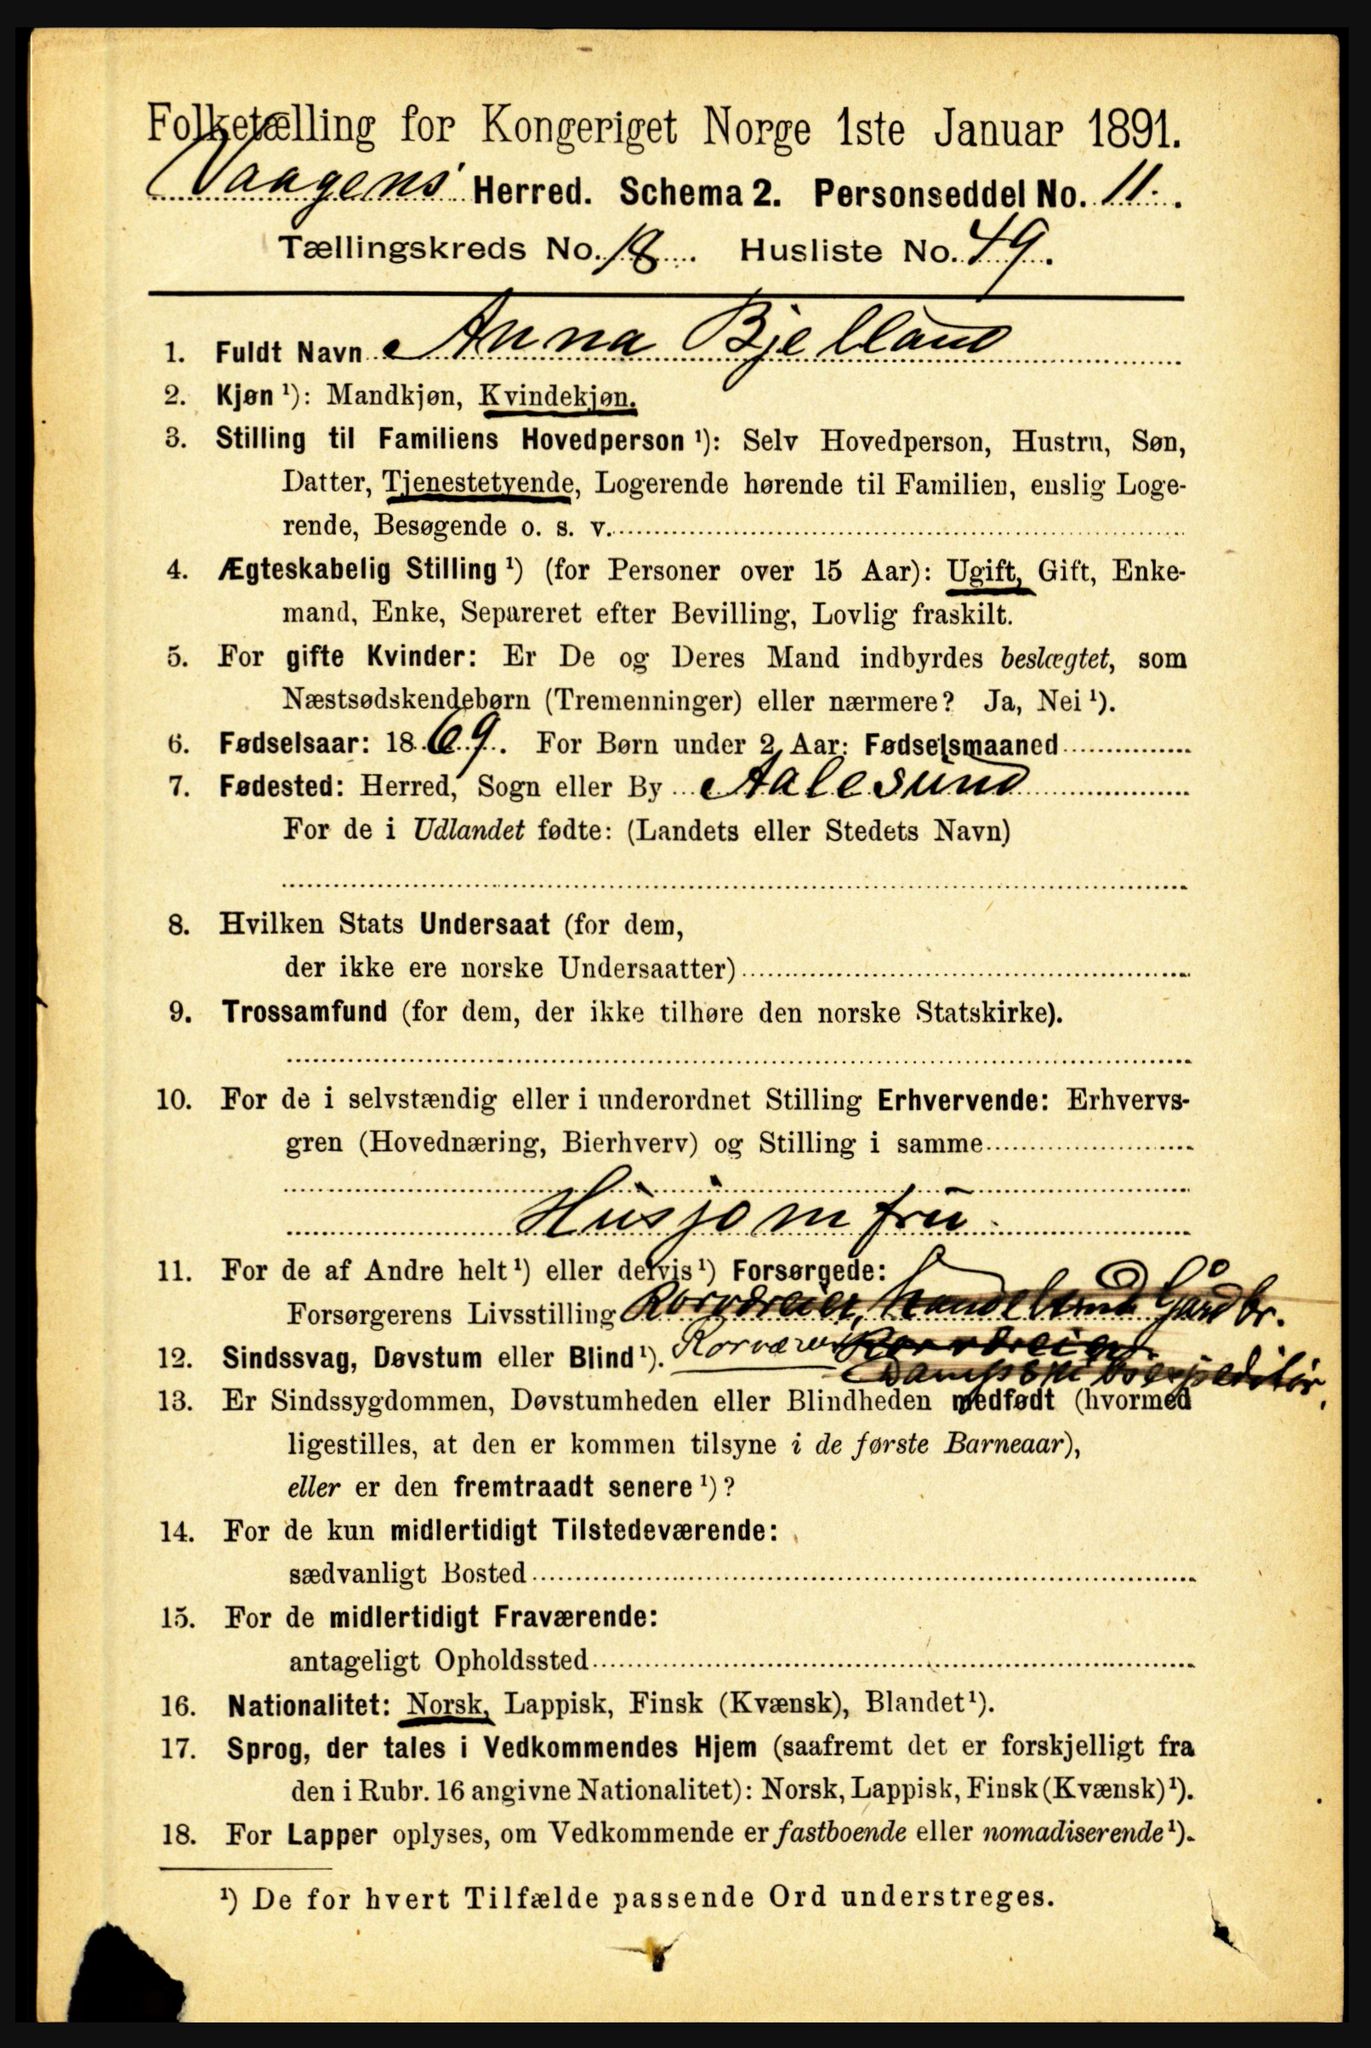 Folketælling for Kongeriget Norge 1ste Januar 1891.
Vaagens Herred. Schema 2. Personseddel No. 11.
Tællingskreds No. 18. Husliste No. 49.
1. Fuldt Navn Anna Bjelland
2. Kjøn ¹): Mandkjøn, Kvindekjøn.
3. Stilling til Familiens Hovedperson ¹): Selv Hovedperson, Hustru, Søn,
Datter, Tjenestetyende, Logerende hørende til Familien, enslig Loge-
rende, Besøgende o. s. v.
4. Ægteskabelig Stilling ¹) (for Personer over 15 Aar): Ugift, Gift, Enke-
mand, Enke, Separeret efter Bevilling, Lovlig fraskilt.
5. For gifte Kvinder: Er De og Deres Mand indbyrdes beslægtet, som
Næstsødskendebørn (Tremenninger) eller nærmere? Ja, Nei ¹).
6. Fødselsaar: 1869. For Børn under 2 Aar: Fødselsmaaned
7. Fødested: Herred, Sogn eller By Aalesund
For de i Udlandet fødte: (Landets eller Stedets Navn)
8. Hvilken Stats Undersaat (for dem,
der ikke ere norske Undersaatter)
9. Trossamfund (for dem, der ikke tilhøre den norske Statskirke).
10. For de i selvstændig eller i underordnet Stilling Erhvervende: Erhvervs-
gren (Hovednæring, Bierhverv) og Stilling i samme
Husjomfru
11. For de af Andre helt ¹) eller delvis ¹) Forsørgede:
Forsørgerens Livsstilling Rorværeier, Gårdbr.
12. Sindssvag, Døvstum eller Blind ¹).
Dampskibsexpeditør,
13. Er Sindssygdommen, Døvstumheden eller Blindheden medfødt (hvormed
ligestilles, at den er kommen tilsyne i de første Barneaar),
eller er den fremtraadt senere ¹)?
14. For de kun midlertidigt Tilstedeværende:
sædvanligt Bosted
15. For de midlertidigt Fraværende:
antageligt Opholdssted
16. Nationalitet: Norsk, Lappisk, Finsk (Kvænsk), Blandet ¹).
17. Sprog, der tales i Vedkommendes Hjem (saafremt det er forskjelligt fra
den i Rubr. 16 angivne Nationalitet): Norsk, Lappisk, Finsk (Kvænsk) ¹).
18. For Lapper oplyses, om Vedkommende er fastboende eller nomadiserende ¹).
¹) De for hvert Tilfælde passende Ord understreges.